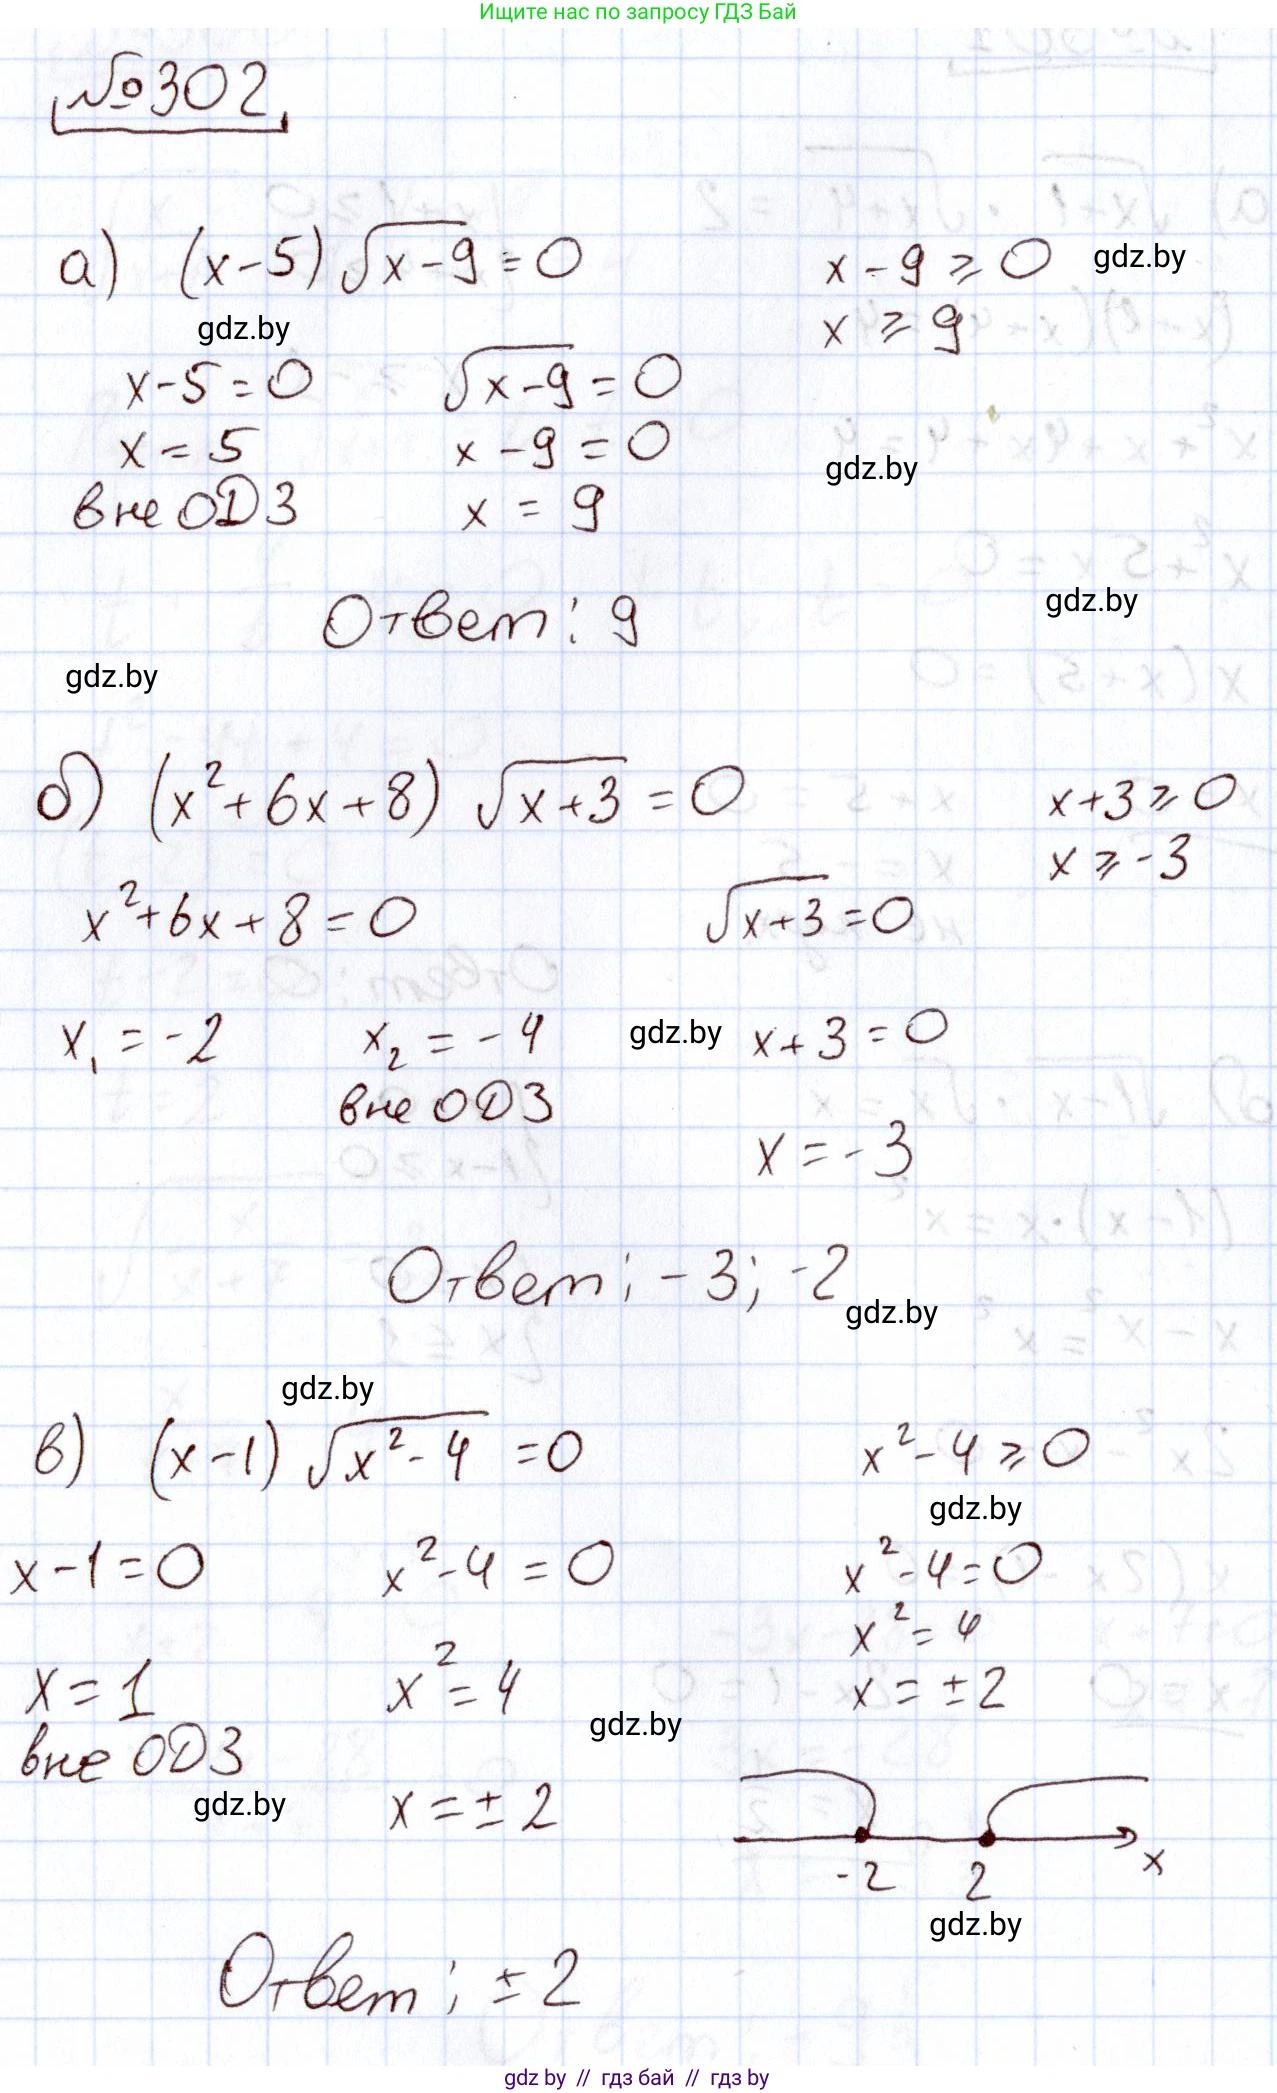 Ищите нас по запросу ГДЗ Бай
№302
а) (x-5) √(x-9) = 0
x-9 ≥ 0
gdz.by
gdz.by
x ≥ 9
x-5=0
√(x-9) = 0
x = 5
x -9 = 0
gdz.by
вне ОДЗ
x = 9
Ответ: 9
gdz.by
gdz.by
б) (x²+6x+8) √(x+3) = 0
x+3 ≥ 0
x ≥ -3
x²+6x+8=0
√(x+3) = 0
x₁ = -2
x₂ = -4
gdz.by
x+3 = 0
вне ОДЗ
x = -3
Ответ: -3; -2
gdz.by
gdz.by
в) (x-1) √(x²-4) = 0
x²-4 ≥ 0
gdz.by
x-1=0
x²-4 = 0
x²-4=0
x² = 4
x = 1
x² = 4
x = ±2
gdz.by
вне ОДЗ
gdz.by
x = ±2
-2
2
x
gdz.by
Ответ: ±2
gdz.by // гдз бай // гдз by